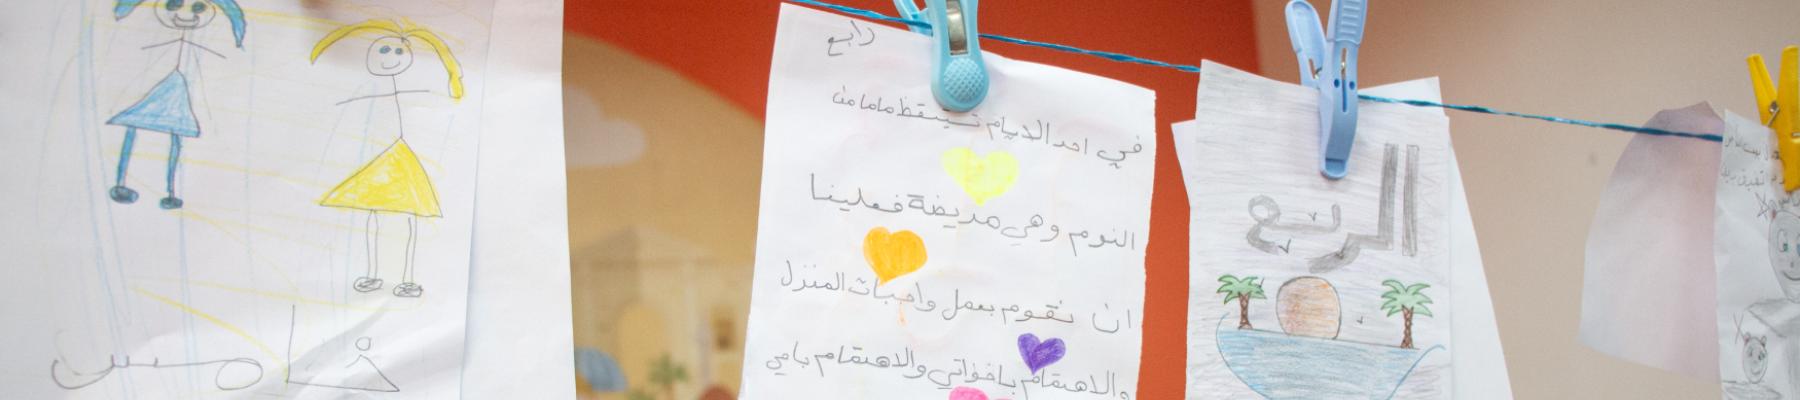 رابع
في احد الايام تستيقظ ماما من
النوم وهي مريضة فعلينا
ان نقوم بعمل واجبات المنزل
والاهتمام باخواتي والاهتمام بامي
الربيع